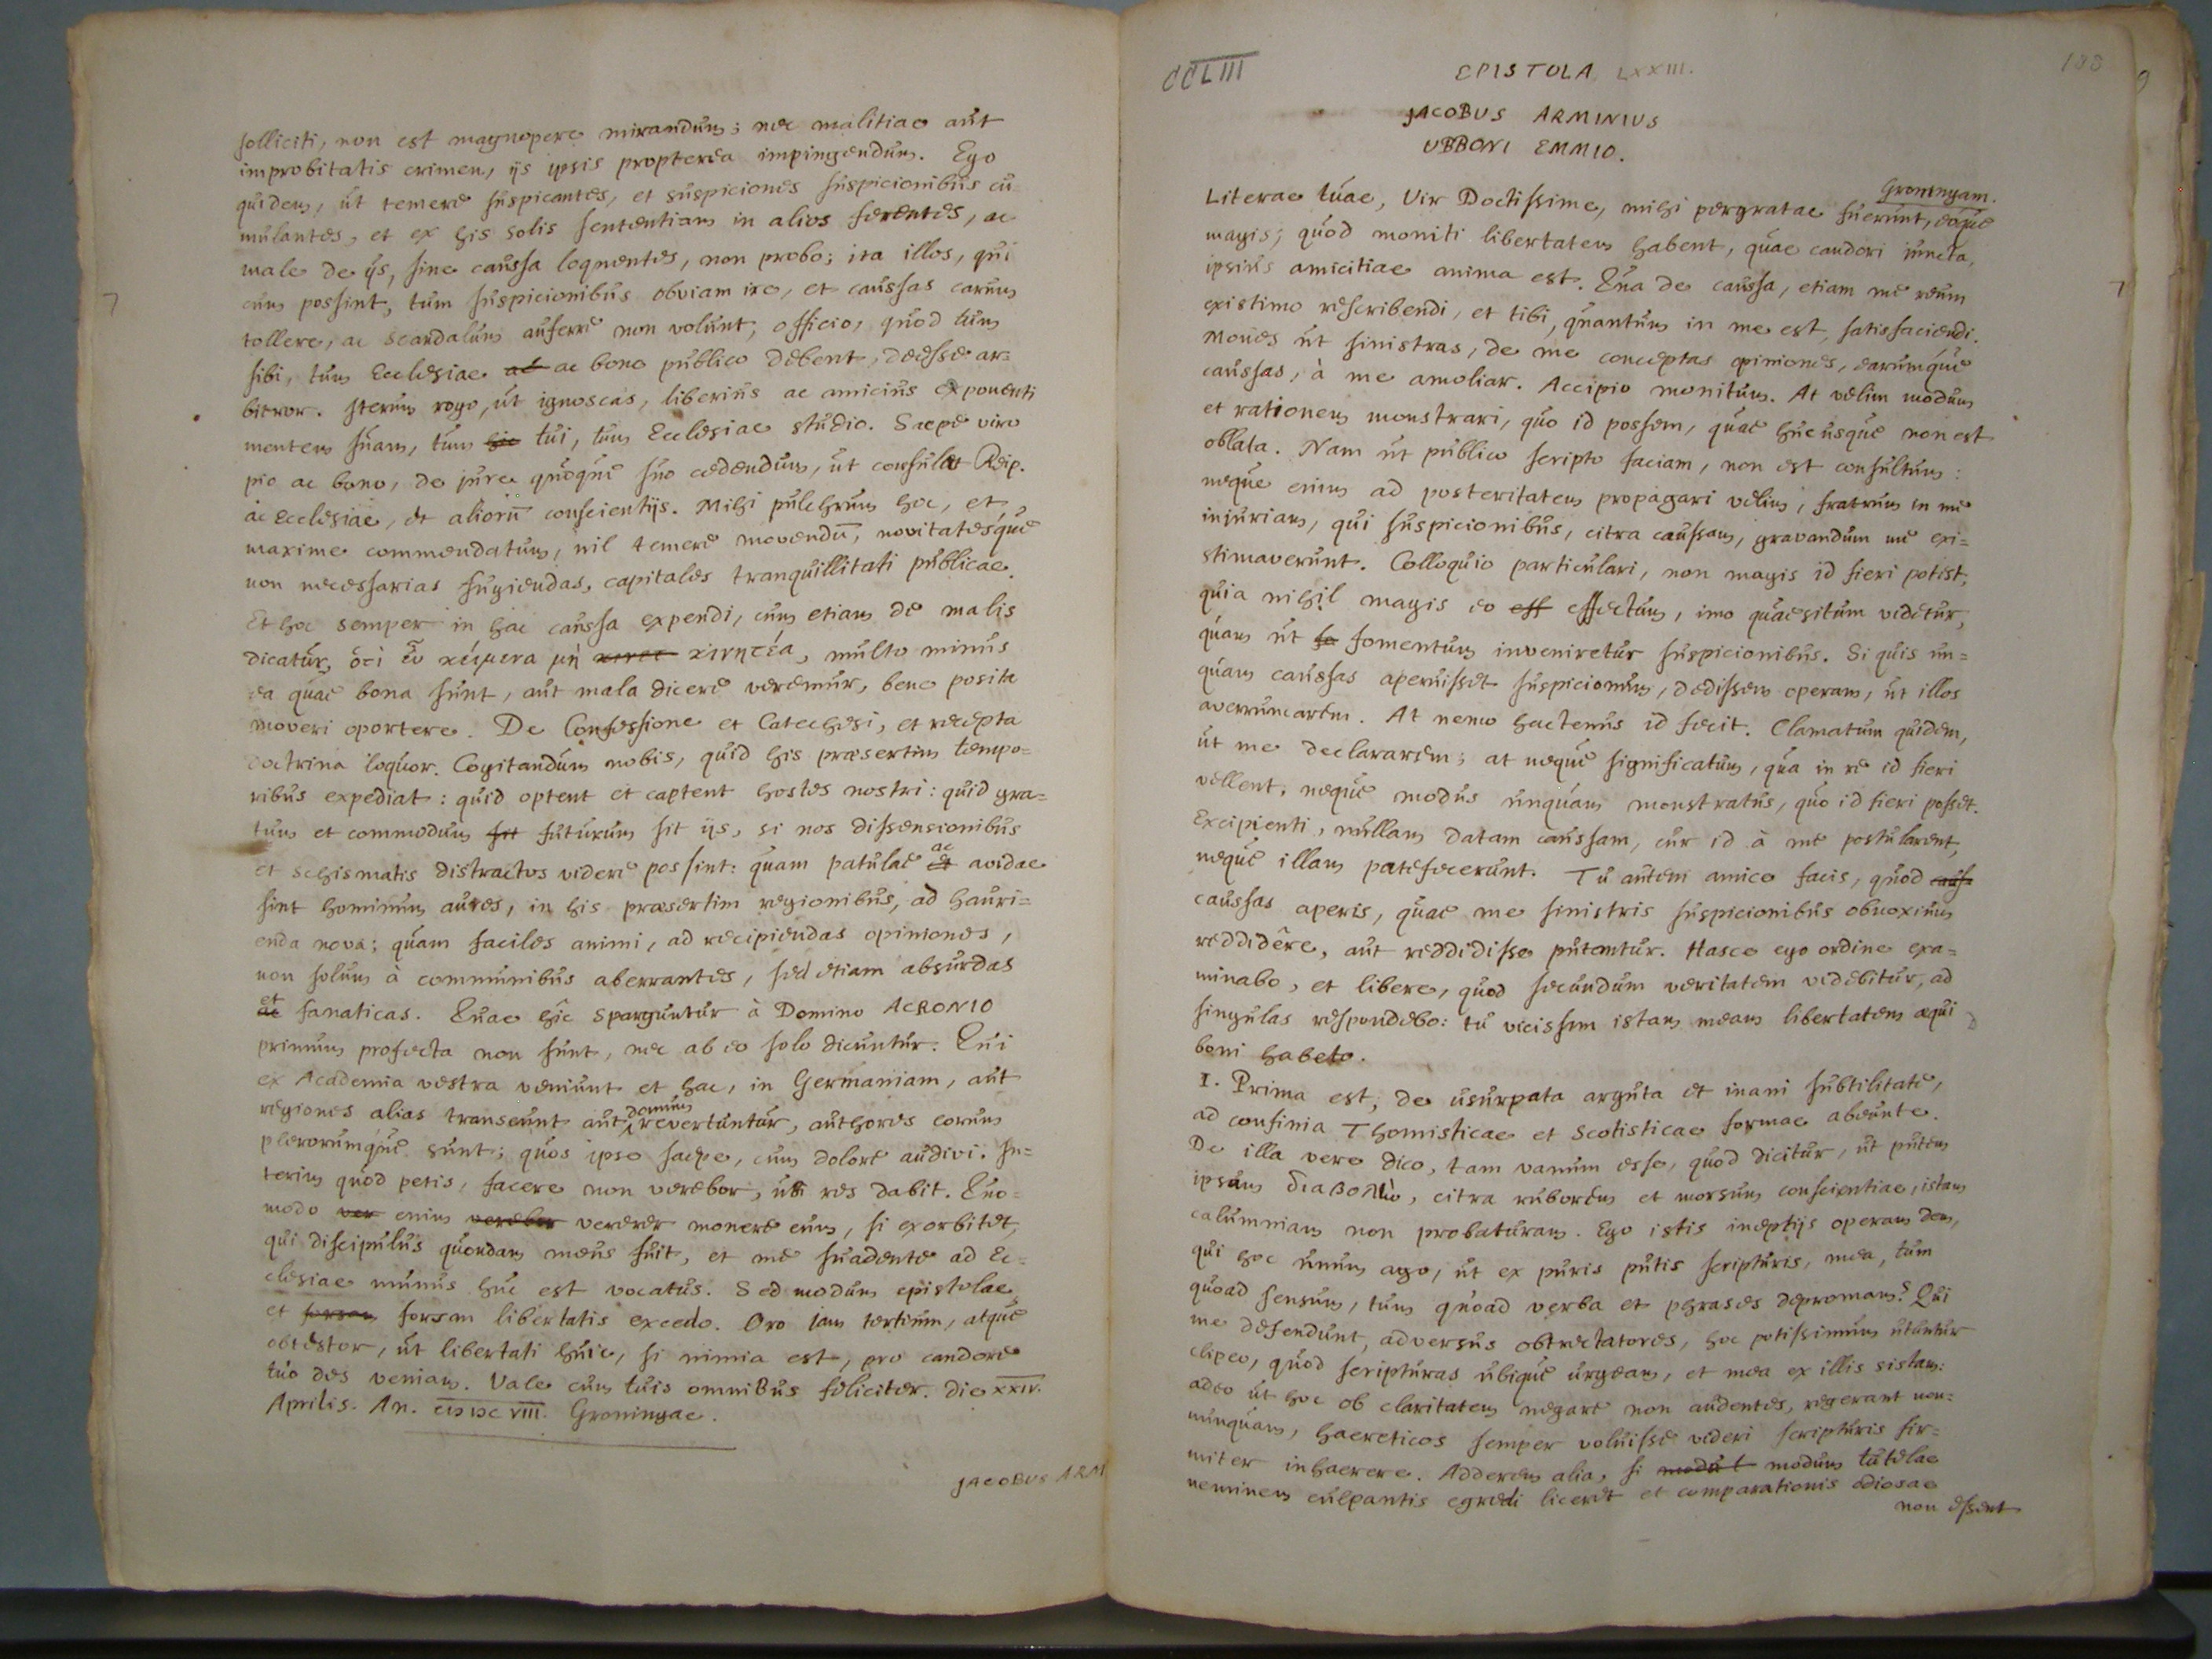 solliciti, non est magnopere mirandum; nec malitiae aut
improbitatis crimen, ijs ipsis propterea impingendum. Ego
quidem, ut temere suspicantes, et suspiciones suspicionibus cu-
mulantes, et ex his solis sententiam in alios ferentes, ac
male de ijs, sine caussa loquentes, non probo; ita illos, qui
cum possint, tum suspicionibus obviam ire, et caussas earum
tollere, ac scandalum auferre non volunt; officio, quod tum
sibi, tum Ecclesiae ad ac bono publico debent, deesse ar=
bitror. Iterum rogo, ut ignoscas, liberius ac amicius exponenti
mentem suam, tum tui, tum Ecclesiae studio. Saepe viro
pio ac bono, de jure quoque suo cedendum, ut consulat Reip.
ac Ecclesiae, et aliorū conscientijs. Mihi pulchrum hoc, et
maxime commendatum, nil temere movendū, novitatesque
non necessarias fugiendas, capitales tranquillitati publicae.
Et hoc semper in hac caussa expendi, cum etiam de malis
dicatur, ὅτι εὖ κείμενα μὴ κινητέα, multo minus
ea quae bona sunt, aut mala dicere veremur, bene posita
moveri oportere. De Confessione et Catechesi, et recepta
doctrina loquor. Cogitandum nobis, quid his praesertim tempo=
ribus expediat: quid optent et captent hostes nostri: quid gra=
tum et commodum sit futurum sit ijs, si nos dissensionibus
et schismatis distractos videre possint: quam patulae et ac avidae
sint hominum aures, in his praesertim regionibus, ad hauri=
enda nova; quam faciles animi, ad recipiendas opiniones,
non solum à communibus aberrantes, sed etiam absurdas
ac et fanaticas. Quae hîc sparguntur à Domino ACRONIO
primum profecta non sunt, nec ab eo solo dicuntur. Qui
ex Academia vestra veniunt et hac, in Germaniam, aut
regiones alias transeunt aut domum revertuntur, authores eorum
plerorumque sunt; quos ipse saepe, cum dolore audivi. In=
terim quod petis, facere non verebor, ubi res dabit. Quo=
modo ver enim verebor vererer monere eum, si exorbitet,
qui discipulus quondam meus fuit, et me suadente ad Ec=
clesiae munus huc est vocatus. Sed modum epistolae
et forsan forsan libertatis excedo. Oro iam tertium, atque
obtestor, ut libertati huic, si nimia est, pro candore
tuo des veniam. Vale cum tuis omnibus feliciter. Die XXIV.
Aprilis. An. CIƆ IƆC VIII. Groningae.
JACOBUS ARM
CCLIII
EPISTOLA LXXIII.
JACOBUS ARMINIUS
UBBONI EMMIO.
Groningam.
Literae tuae, Vir Doctissime, mihi pergratae fuerunt, eoque
magis; quod moniti libertatem habent, quae candori iuncta,
ipsius amicitiae anima est. Qua de caussa, etiam me reum
existimo rescribendi, et tibi, quantum in me est, satisfaciendi.
Mones ut sinistras, de me conceptas opiniones, earumque
caussas, à me amoliar. Accipio monitum. At velim modum
et rationem monstrari, quo id possem, quae hucusque non est
oblata. Nam ut publico scripto faciam, non est consultum:
neque enim ad posteritatem propagari velim, fratrum in me
injuriam, qui suspicionibus, citra caussam, gravandum me exi=
stimaverunt. Colloquio particulari, non magis id fieri potest,
quia nihil magis eo eff effectum, imo quaesitum videtur,
quam ut fo fomentum inveniretur suspicionibus. Si quis un=
quam caussas aperuisset suspicionum, dedissem operam, ut illos
averruncarem. At nemo hactenus id fecit. Clamatum quidem,
ut me declararem; at neque significatum, qua in re id fieri
vellent, neque modus unquam monstratus, quo id fieri posset.
Excipienti, nullam datam caussam, cur id à me postularent,
neque illam patefecerunt. Tu autem amice facis, quod causs
caussas aperis, quae me sinistris suspicionibus obnoxium
reddidêre, aut reddidisse putentur. Hasce ego ordine exa=
minabo, et libere, quod secundum veritatem videbitur, ad
singulas respondebo: tu vicissim istam meam libertatem aequi
boni habeto.
I. Prima est, de usurpata arguta et inani subtilitate,
ad confinia Thomisticae et Scotisticae formae abeunte.
De illa vere dico, tam vanum esse, quod dicitur, ut putem
ipsum διαβολὸν, citra ruborem et morsum conscientiae, istam
calumniam non probaturam. Ego istis ineptijs operam dem,
qui hoc unum ago, ut ex puris putis scripturis, mea, tum
quoad sensum, tum quoad verba et phrases depromam? Qui
me defendunt, adversus obtrectatores, hoc potissimum utuntur
clipeo, quod scripturas ubique urgeam, et mea ex illis sistam:
adeo ut hoc ob claritatem negare non audentes, regerant non=
nunquam, haereticos semper voluisse videri scripturis fir=
miter inhaerere. Adderem alia, si modum tutelae
neminem culpantis egredi liceret et comparationis odiosae
non essent